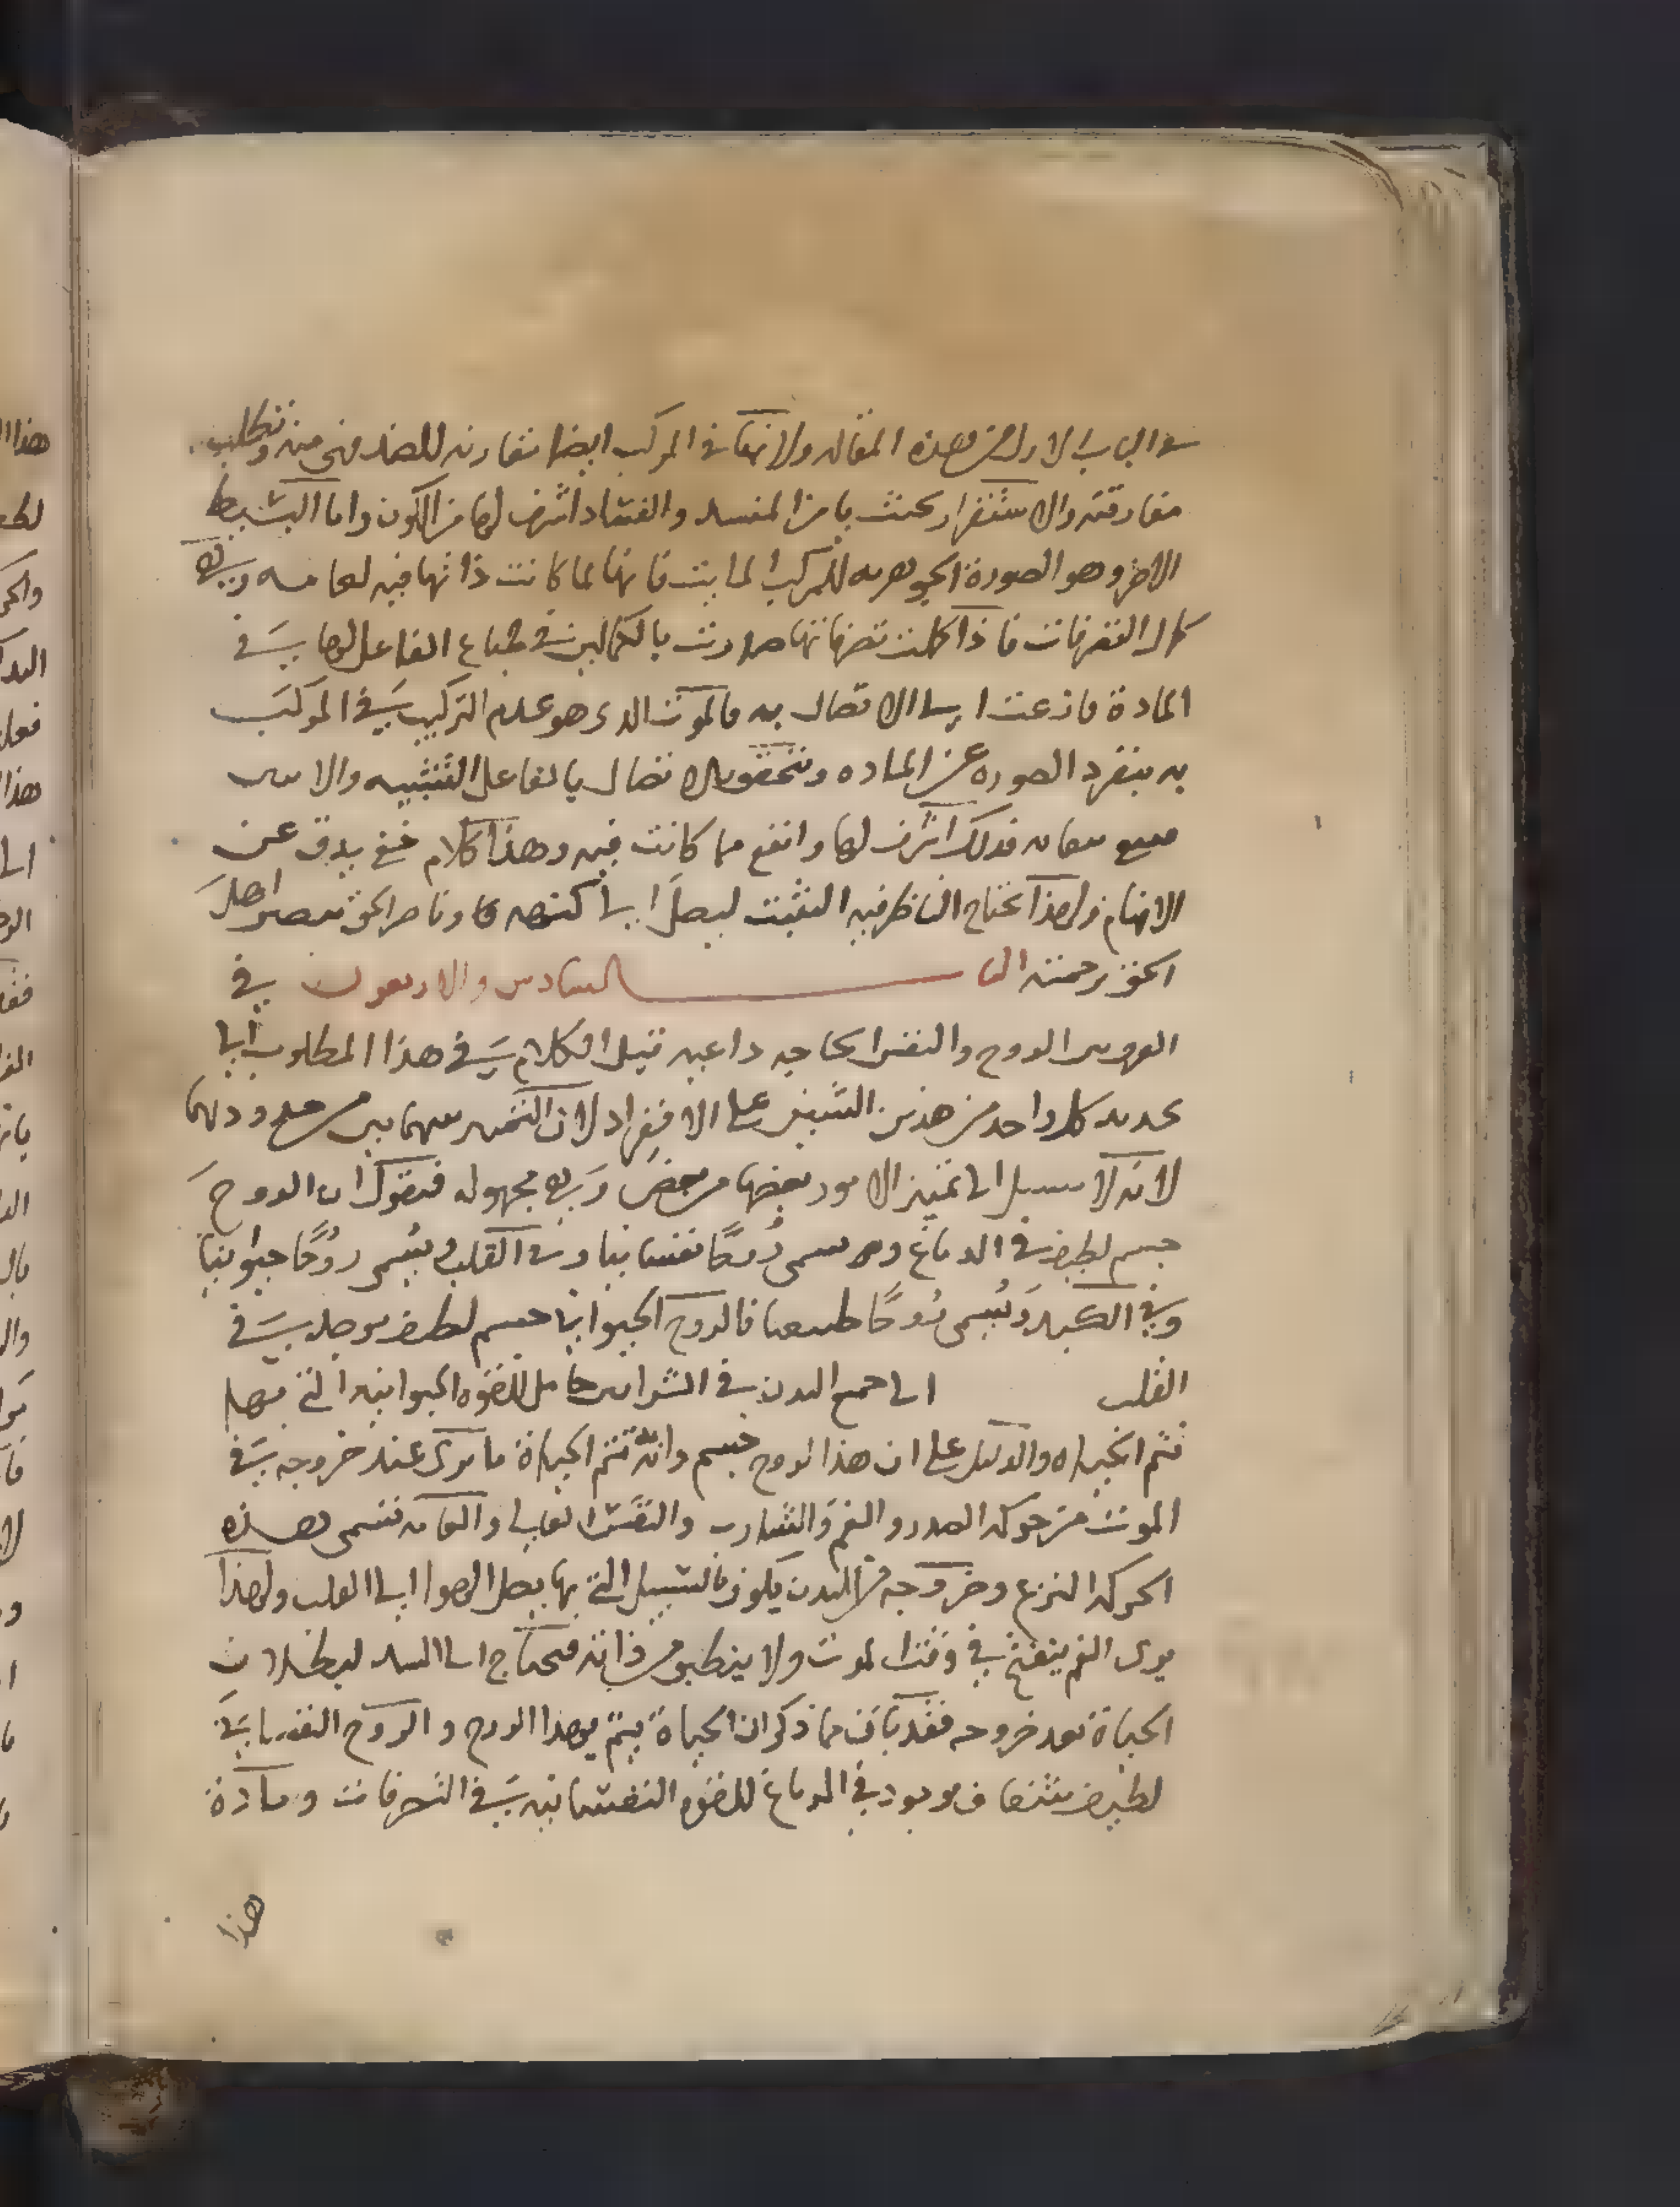 في الباب الاول من هذه المقاله ولانها في المركب ايضا مقارنه للضد فهي منه وتطلب
مفارقته والاستقرار بحيث يامن المفسد والفساد اشرف لها من الكون واما البسيط
الاخر وهو الصورة الجوهريه للمركب المايت فانها لما كانت ذاتها فيه
كمال التصرفات فاذا كملت تصرفاتها صارت بالكمال في طباع الفاعل لها في
المادة فانزعت الي الاتصال به فالموت الدي هو عدم التركيب في المركب
به ينفرد الصوره عن الماده ويتحقق الاتصال بالفاعل
فدلك اشرف لها وانفع مما كانت فيه وهذا كلام يدق عن
الافهام ولهذا يحتاج الناظر فيه التثبت ليصل الي كنهه وناصر الحق اهل
الحق برحمته البا السادس والاربعون في
الفرق بين الروح والنفس الحاجه داعيه قبل الكلام في هذا المطلوب الي
تحديد كل واحد من هذين الشيين علي الانفراد لان التمييز بينهما يبين من حدودهما
لانه لا سبيل الي تمييز الامور بعضها من بعض وهي مجهوله فنقول ان الروح
جسم لطيف في الدماغ ويسمي روحًا نفسانيا وفي القلب ويسمي روحًا حيوانيا
وفي الكبد ويسمي روحًا طبيعيا فالروح الحيواني جسم لطيف يوجد في
القلب الي جميع البدن في الشرايين حامل للقوه الحيوانيه التي بها
تتم الحياه والدليل علي ان هذا الروح جسم وانه تتم الحياة ما يري عند خروجه في
الموت من حركه الصدر والفم والشارب والنفس العالي والعامه تسمي هذه
الحركه النزع وخروجه من البدن يكون بالسبيل التي بها يصل الهوا الي القلب ولهذا
يري الفم ينفتح في وقت الموت ولا ينطبق من ذاته فيحتاج الي الشد لبطلان
الحياة بعد خروجه فقد بان مما ذكر ان الحياة تتم بهذا الروح والروح النفساني
لطيف شفاف موجود في الدماغ للقوه النفسانيه في التصرفات ومادة
هذا